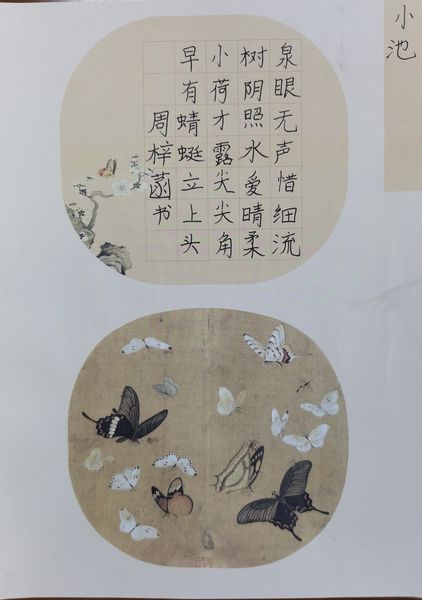 小池
泉眼无声惜细流
树阴照水爱晴柔
小荷才露尖尖角
早有蜻蜓立上头
周梓菡书